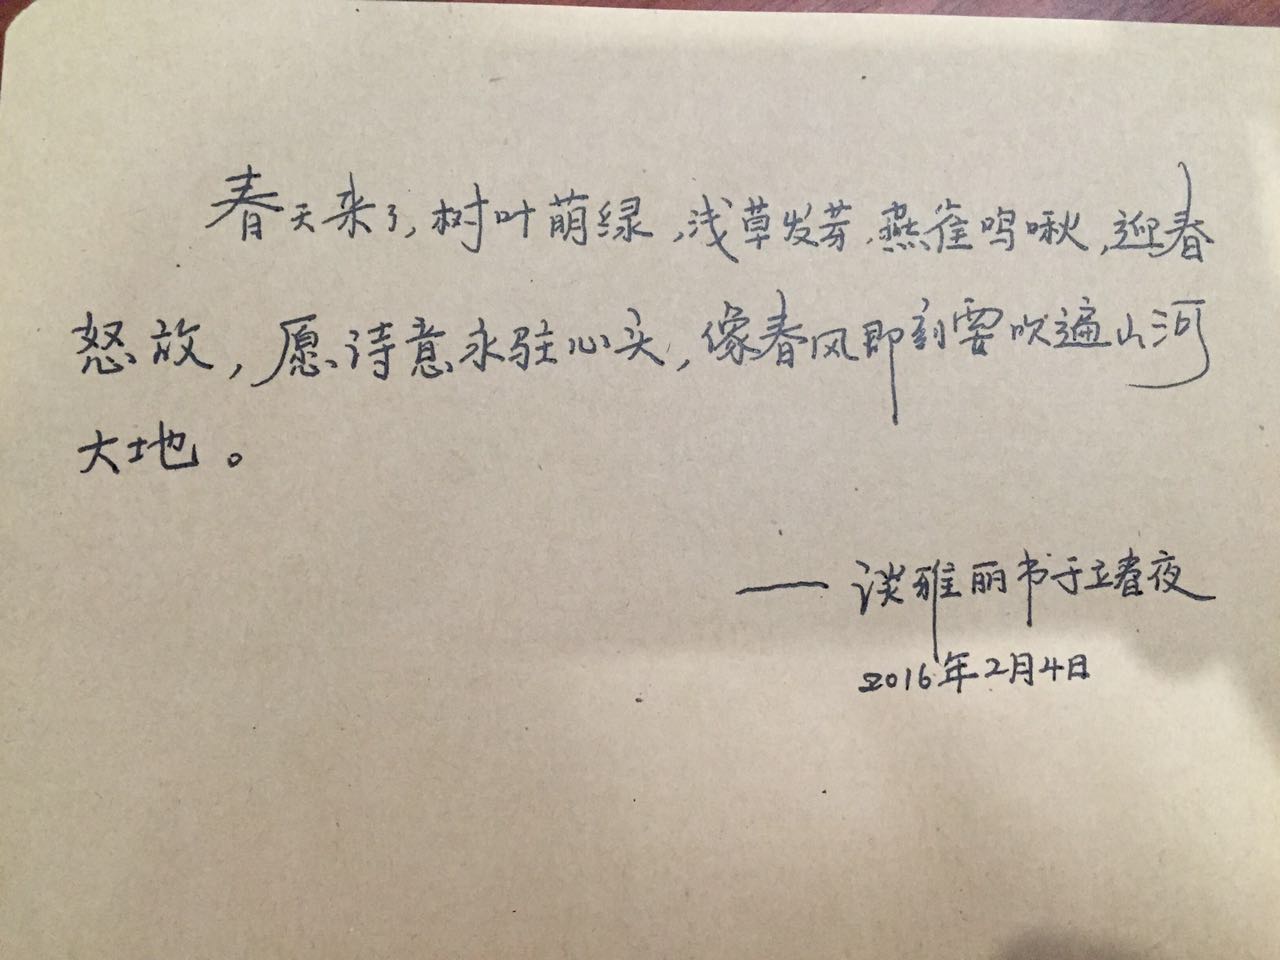 春天来了,树叶萌绿,浅草发芽,燕雀鸣啾,迎春
怒放,愿诗意永驻心头,像春风即刻要吹遍山河
大地。
——谈雅丽书于立春夜
2016年2月4日